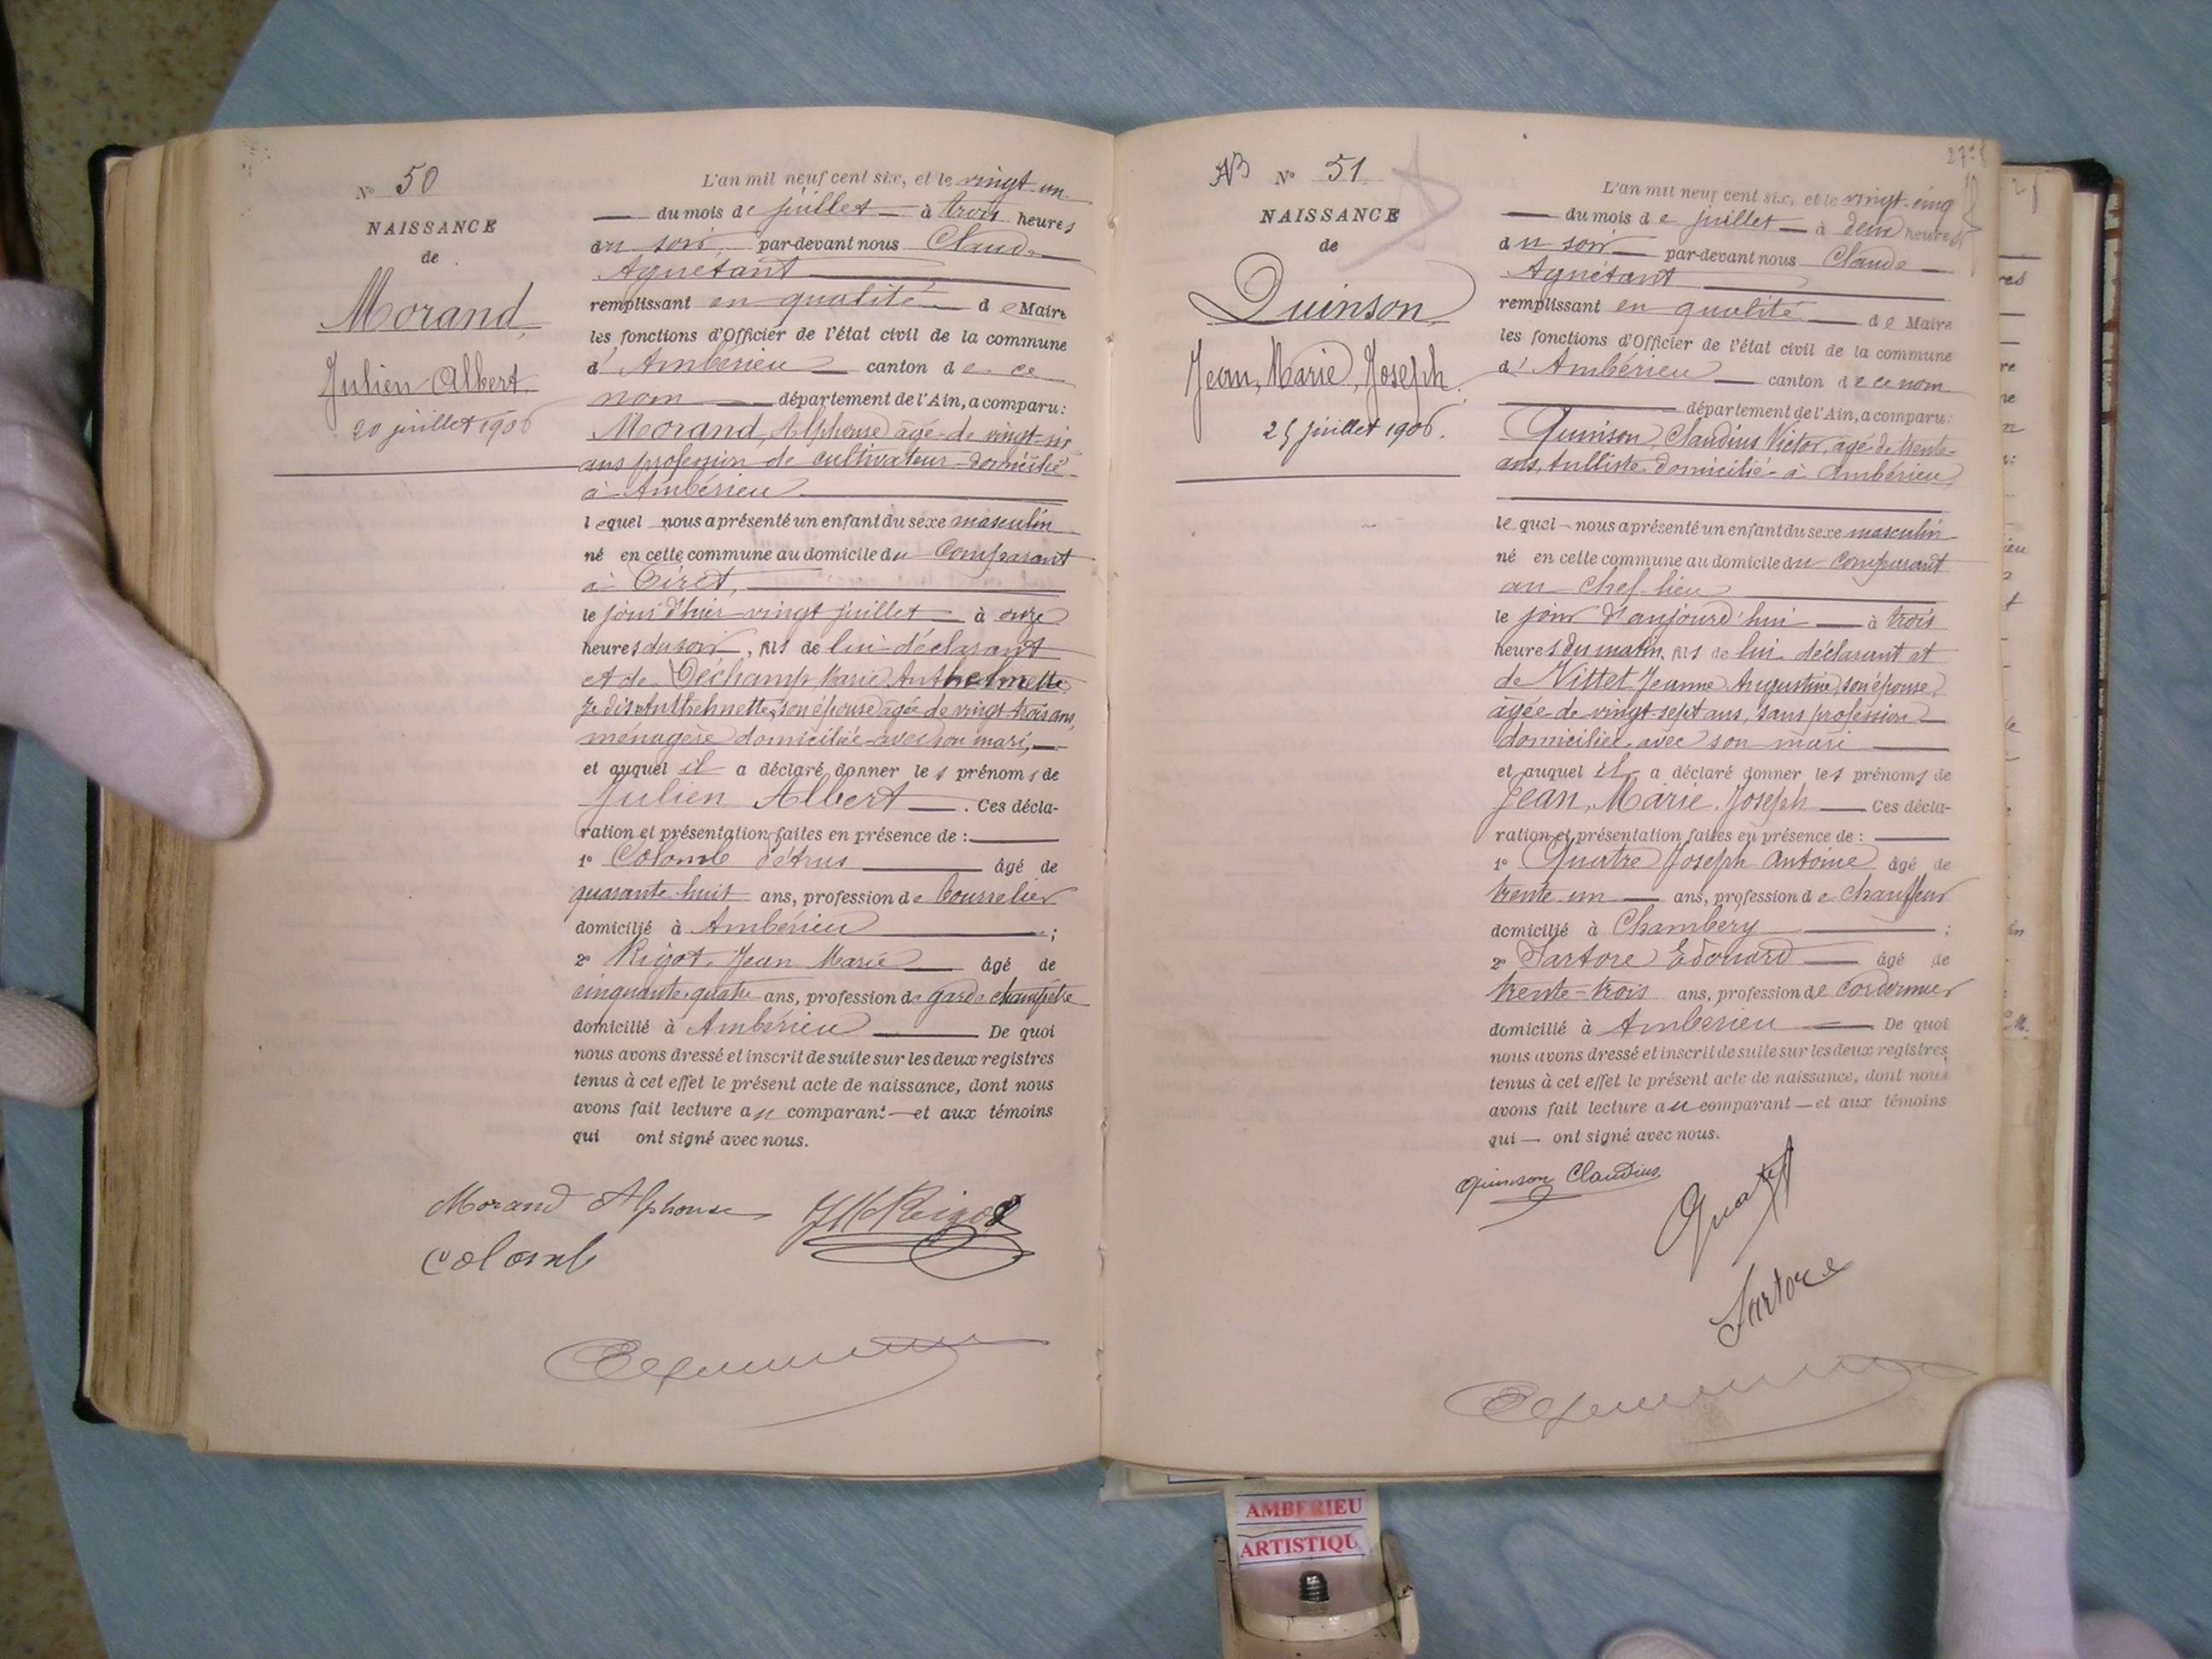 N° 50
NAISSANCE
de
Morand,
Julien Albert
20 juillet 1906
L'an mil neuf cent six, et le vingt-un
du mois de juillet à trois heures
du soir par-devant nous Claude
Aguétant
remplissant en qualité de Maire
les fonctions d'Officier de l'état civil de la commune
d'Ambérieu canton de ce
nom département de l'Ain, a comparu:
Morand, Alphonse âgé de vingt-six
ans profession de cultivateur domicilié
à Ambérieu
lequel nous a présenté un enfant du sexe masculin
né en cette commune au domicile du Comparant
à Tiret,
le jour d'hier vingt juillet à onze
heures du soir, fils de lui déclarant
et de Déchamp Marie Anthelmette
Je dis Anthelmette, son épouse âgée de vingt-trois ans,
ménagère domiciliée avec son mari,
et auquel il a déclaré donner les prénoms de
Julien Albert. Ces décla-
ration et présentation faites en présence de :
1° Colomb Pétrus âgé de
quarante-huit ans, profession de bourrelier
domicilié à Ambérieu ;
2° Rigot, Jean Marie âgé de
cinquante-quatre ans, profession de garde champêtre
domicilié à Ambérieu De quoi
nous avons dressé et inscrit de suite sur les deux registres
tenus à cet effet le présent acte de naissance, dont nous
avons fait lecture au comparant et aux témoins
qui ont signé avec nous.
Morand Alphonse JM Rigot
Colomb
N° 51
NAISSANCE
de
Quinson
Jean, Marie, Joseph.
25 juillet 1906.
L'an mil neuf cent six, et le vingt-cinq
du mois de juillet à deux heures
du soir par-devant nous Claude
Aguétant
remplissant en qualité de Maire
les fonctions d'Officier de l'état civil de la commune
d'Ambérieu canton de ce nom
département de l'Ain, a comparu:
Quinson, Claudius Victor, âgé de trente
ans, tulliste domicilié à Ambérieu
lequel nous a présenté un enfant du sexe masculin
né en cette commune au domicile du comparant
au chef-lieu
le jour d'aujourd'hui à trois
heures du matin, fils de lui déclarant et
de Vittet Jeanne Augustine, son épouse,
âgée de vingt-sept ans, sans profession
domiciliée avec son mari
et auquel il a déclaré donner les prénoms de
Jean, Marie, Joseph Ces décla-
ration et présentation faites en présence de :
1° Quatre Joseph Antoine âgé de
trente-un ans, profession de chauffeur
domicilié à Chambéry ;
2° Sartore Edouard âgé de
trente-trois ans, profession de cordonnier
domicilié à Ambérieu De quoi
nous avons dressé et inscrit de suite sur les deux registres
tenus à cet effet le présent acte de naissance, dont nous
avons fait lecture au comparant et aux témoins
qui ont signé avec nous.
Quinson Claudius
Sartore
AMBERIEU
ARTISTIQU